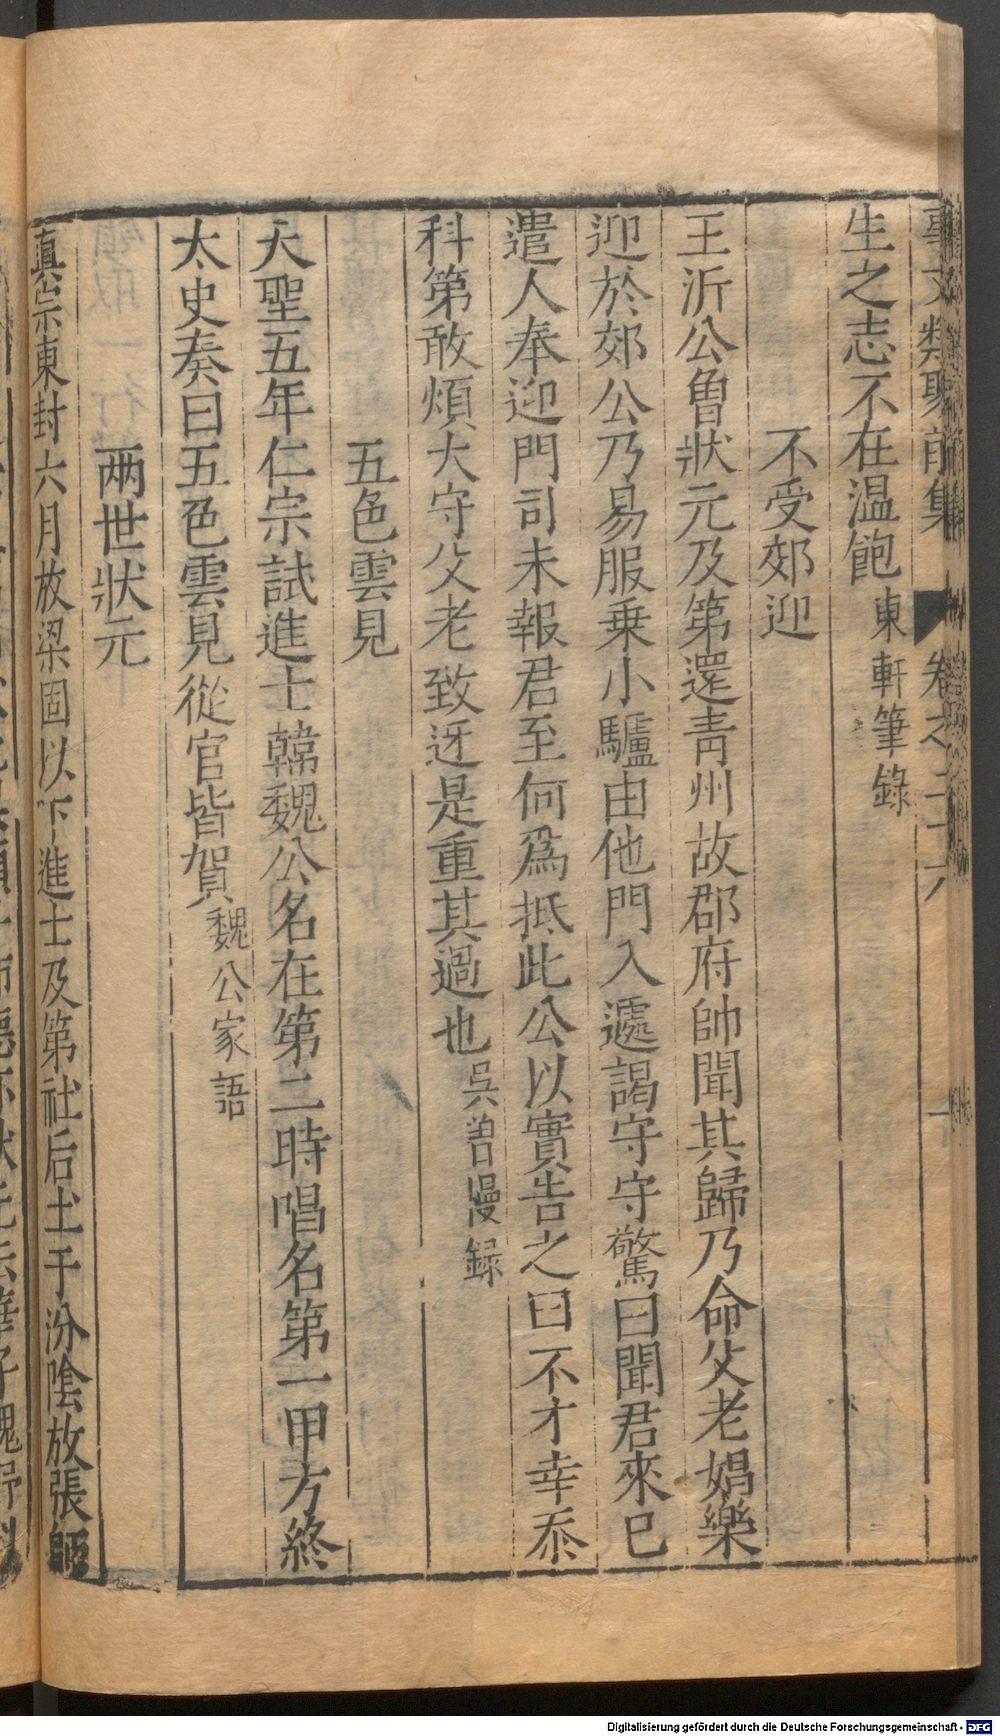 事文類聚前集 卷之二十六
生之志不在温飽東軒筆錄
不受郊迎
王沂公曾狀元及第還青州故郡府帥聞其歸乃命父老娼樂
迎於郊公乃易服乗小驢由他門入遽謁守守驚曰聞君來已
遣人奉迎門司未報君至何爲抵此公以實告之曰不才幸忝
科第敢煩大守父老致迓是重其過也吳曾漫録
五色雲見
天聖五年仁宗試進士韓魏公名在第二時唱名第一甲方終
太史奏曰五色雲見從官皆賀魏公家語
两世狀元
真宗東封六月放梁固以下進士及第社后土于汾陰放張師
Digitalisierung gefördert durch die Deutsche Forschungsgemeinschaft - DFG